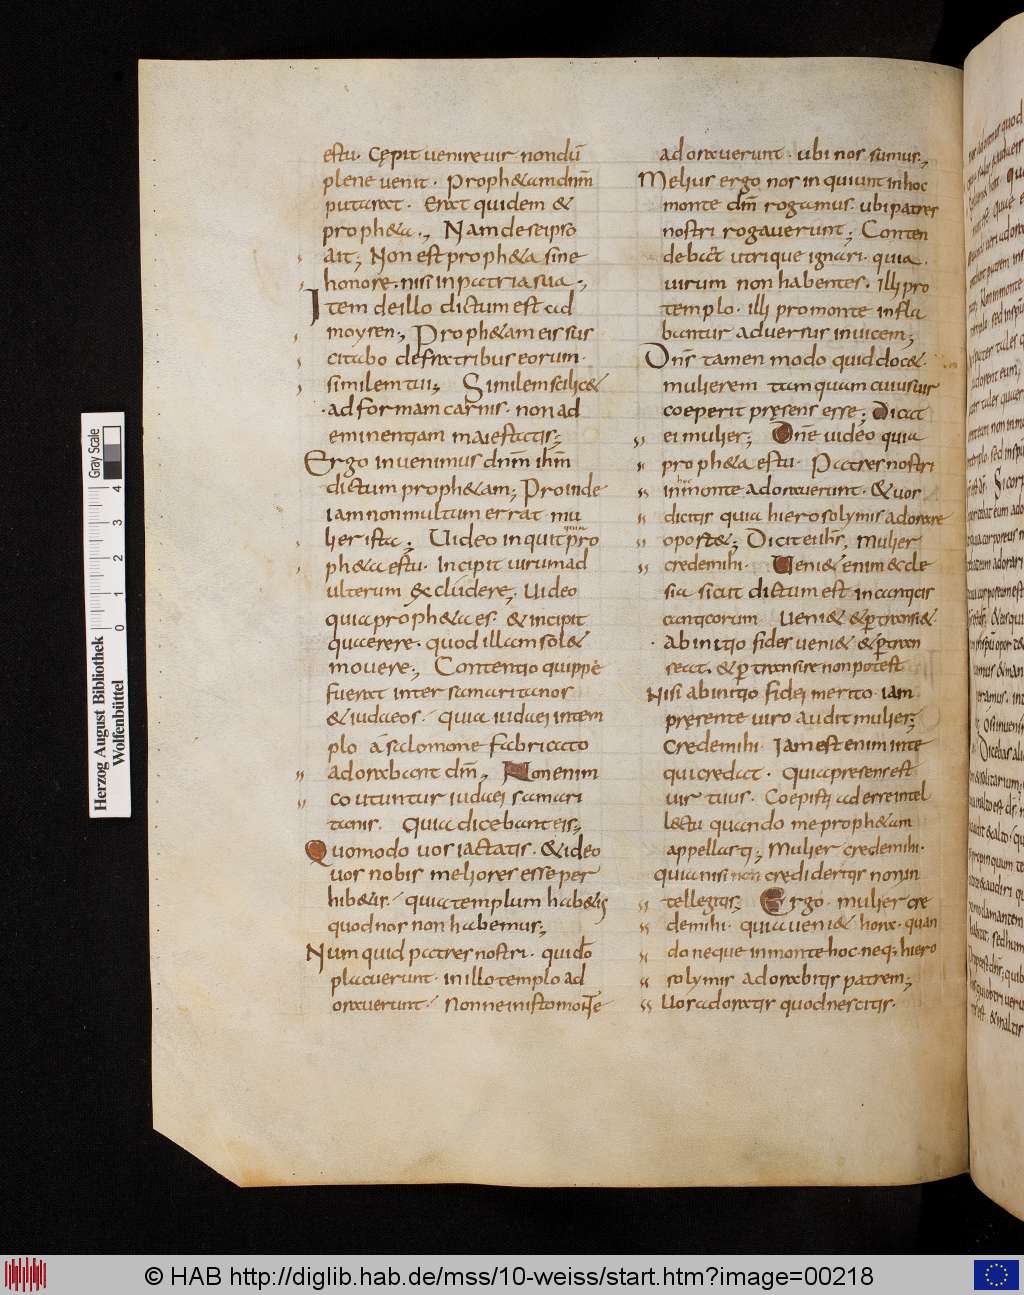 estu· Cępit venire vir nondū
plene venit· Proph&am dn̄m
putarat· Erat quidem &
proph&a·, Nam de se ipso
ait; Non est proph&a sine
honore· nisi in patria sua·,
Item de illo dictum est ad
moysen·, Proph&am eis sus
citabo de fratribus eorum·
similem tui; Similem scilic&
·ad formam carnis· non ad
eminentiam maiestatis;
Ergo invenimus dn̄m ih̄m
dictum proph&am; Proinde
iam non multum errat mu
lier ista; Video inquit quia pro
ph&a es tu· Incipit virum ad
ulterum &cludere; Video
quia proph&a es· & incipit
quaerere· quod illam sol&
movere; Contentio quippe
fuerat inter samaritanos
& iudaeos· Quia iudaei in tem
plo a salomone fabricato
adorabant dm̄, Non enim
co utuntur iudaei samari
tanis· Quia dicebant eis;
Quomodo vos iactatis· & ideo
vos nobis meliores esse per
hib&is· quia templum hab&is
quod nos non habemus;
Numquid patres nostri· qui dō
placuerunt· in illo templo ad
oraverunt· Nonne in isto monte
adoraverunt· ubi nos sumus;
Melius ergo nos inquiunt in hoc
monte dm̄ rogamus· ubi patres
nostri rogaverunt; Conten
debant utrique ignari· quia
virum non habentes· illi pro
templo· illi pro monte infla
bantur adversus invicem;
Dn̄s tamen modo quid doc&
mulierem tamquam cuius vir
coeperit pręsens esse; Dicit
ei mulier; Dn̄e video quia
proph&a es tu· Patres nostri
in hoc monte adoraverunt· & vos
dicitis quia hierosolymis adorare
oport&; Dicit ei ih̄s, Mulier
credemihi· Veni& enim &cle
sia sicut dictum est in canticis
canticorum Veni& & p̱transi&·
· Ab initio fides veni& & p̱tran
seat· & p̱transire non potest
Nisi ab initio fidei merito· iam
pręsente viro audit mulier;
Credemihi· Iam est enim in te
qui credat· Quia presens est
vir tuus· Coepisti adesse intel
lectu quando me proph&am
appellasti; Mulier credemihi·
quia nisi non credideritis non in
tellegitis; Ergo· mulier cre
demihi· quia veni& hora· quan
do neque in monte hoc· neq; hiero
solymis adorabitis patrem;
Vos adoratis quod nescitis·
Herzog August Bibliothek
Wolfenbüttel
Gray Scale
0 1 2 3 4
© HAB http://diglib.hab.de/mss/10-weiss/start.htm?image=00218